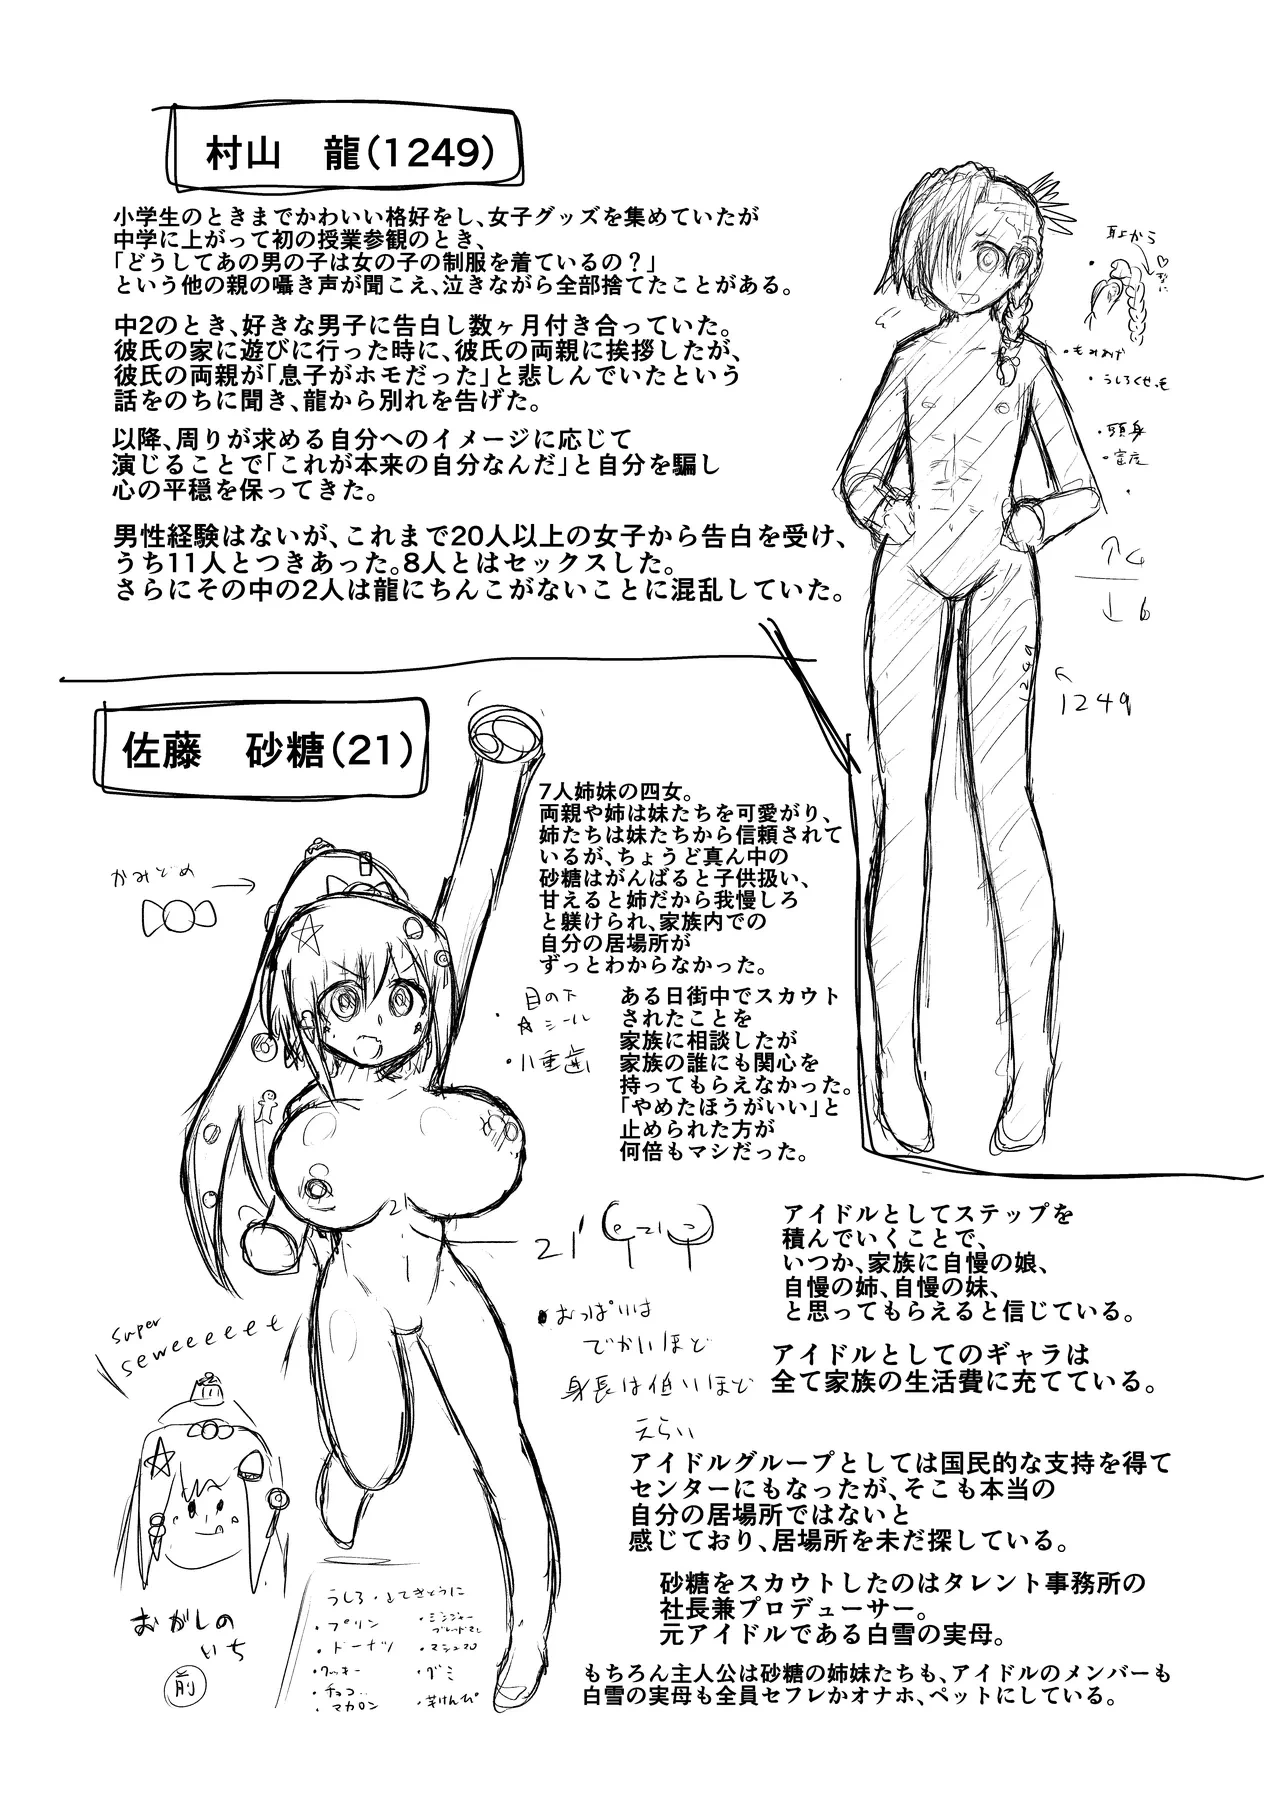 村山　龍(1249)
小学生のときまでかわいい格好をし、女子グッズを集めていたが
中学に上がって初の授業参観のとき、
「どうしてあの男の子は女の子の制服を着ているの？」
という他の親の囁き声が聞こえ、泣きながら全部捨てたことがある。
中2のとき、好きな男子に告白し数ヶ月付き合っていた。
彼氏の家に遊びに行った時に、彼氏の両親に挨拶したが、
彼氏の両親が「息子がホモだった」と悲しんでいたという
話をのちに聞き、龍から別れを告げた。
以降、周りが求める自分へのイメージに応じて
演じることで「これが本来の自分なんだ」と自分を騙し
心の平穏を保ってきた。
男性経験はないが、これまで20人以上の女子から告白を受け、
うち11人とつきあった。8人とはセックスした。
さらにその中の2人は龍にちんこがないことに混乱していた。
耳上から
・もみあげ
・うしろくせっ毛
・頭身
・密度
↑4
↓6
1249
1249
佐藤　砂糖(21)
かみどめ
7人姉妹の四女。
両親や姉は妹たちを可愛がり、
姉たちは妹たちから信頼されて
いるが、ちょうど真ん中の
砂糖はがんばると子供扱い、
甘えると姉だから我慢しろ
と躾けられ、家族内での
自分の居場所が
ずっとわからなかった。
・目の下
☆シール
・八重歯
ある日街中でスカウト
されたことを
家族に相談したが
家族の誰にも関心を
持ってもらえなかった。
「やめたほうがいい」と
止められた方が
何倍もマシだった。
21
21
21
・おっぱいは
でかいほど
身長は低いほど
えらい
アイドルとしてステップを
積んでいくことで、
いつか、家族に自慢の娘、
自慢の姉、自慢の妹、
と思ってもらえると信じている。
アイドルとしてのギャラは
全て家族の生活費に充てている。
アイドルグループとしては国民的な支持を得て
センターにもなったが、そこも本当の
自分の居場所ではないと
感じており、居場所を未だ探している。
砂糖をスカウトしたのはタレント事務所の
社長兼プロデューサー。
元アイドルである白雪の実母。
もちろん主人公は砂糖の姉妹たちも、アイドルのメンバーも
白雪の実母も全員セフレかオナホ、ペットにしている。
super
seweeeeet
おがしの
いち
前
うしろ・よてきとうに
・プリン
・ドーナツ
・クッキー
・チョコ..
・マカロン
・ジンジャー
ブレッドマン
・マシュマロ
・グミ
・芋けんぴ